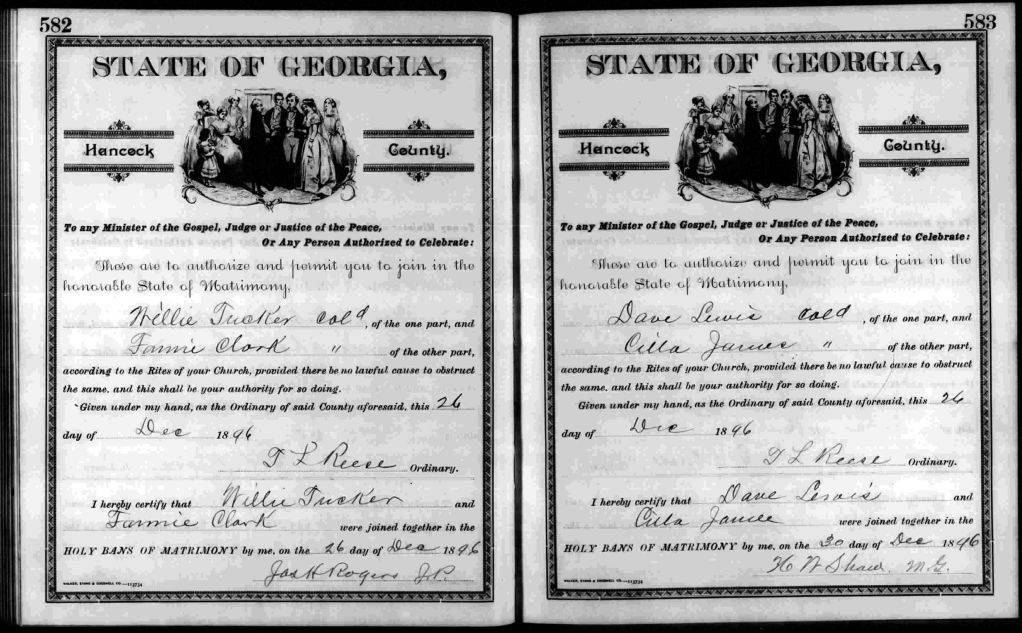 582
STATE OF GEORGIA,
Hancock County.
To any Minister of the Gospel, Judge or Justice of the Peace,
Or Any Person Authorized to Celebrate:
These are to authorize and permit you to join in the
honorable State of Matrimony,
Willie Tucker Cold, of the one part, and
Fannie Clark " of the other part,
according to the Rites of your Church, provided there be no lawful cause to obstruct
the same, and this shall be your authority for so doing.
Given under my hand, as the Ordinary of said County aforesaid, this 26
day of Dec 1896
T L Reese Ordinary.
I hereby certify that Willie Tucker and
Fannie Clark were joined together in the
HOLY BANS OF MATRIMONY by me, on the 26 day of Dec 1896
Jas H Rogers J.P.
583
STATE OF GEORGIA,
Hancock County.
To any Minister of the Gospel, Judge or Justice of the Peace,
Or Any Person Authorized to Celebrate:
These are to authorize and permit you to join in the
honorable State of Matrimony,
Dave Lewis Cold, of the one part, and
Cilla James " of the other part,
according to the Rites of your Church, provided there be no lawful cause to obstruct
the same, and this shall be your authority for so doing.
Given under my hand, as the Ordinary of said County aforesaid, this 26
day of Dec 1896
T L Reese Ordinary.
I hereby certify that Dave Lewis and
Cilla James were joined together in the
HOLY BANS OF MATRIMONY by me, on the 30 day of Dec 1896
H W Shaw, M.G.